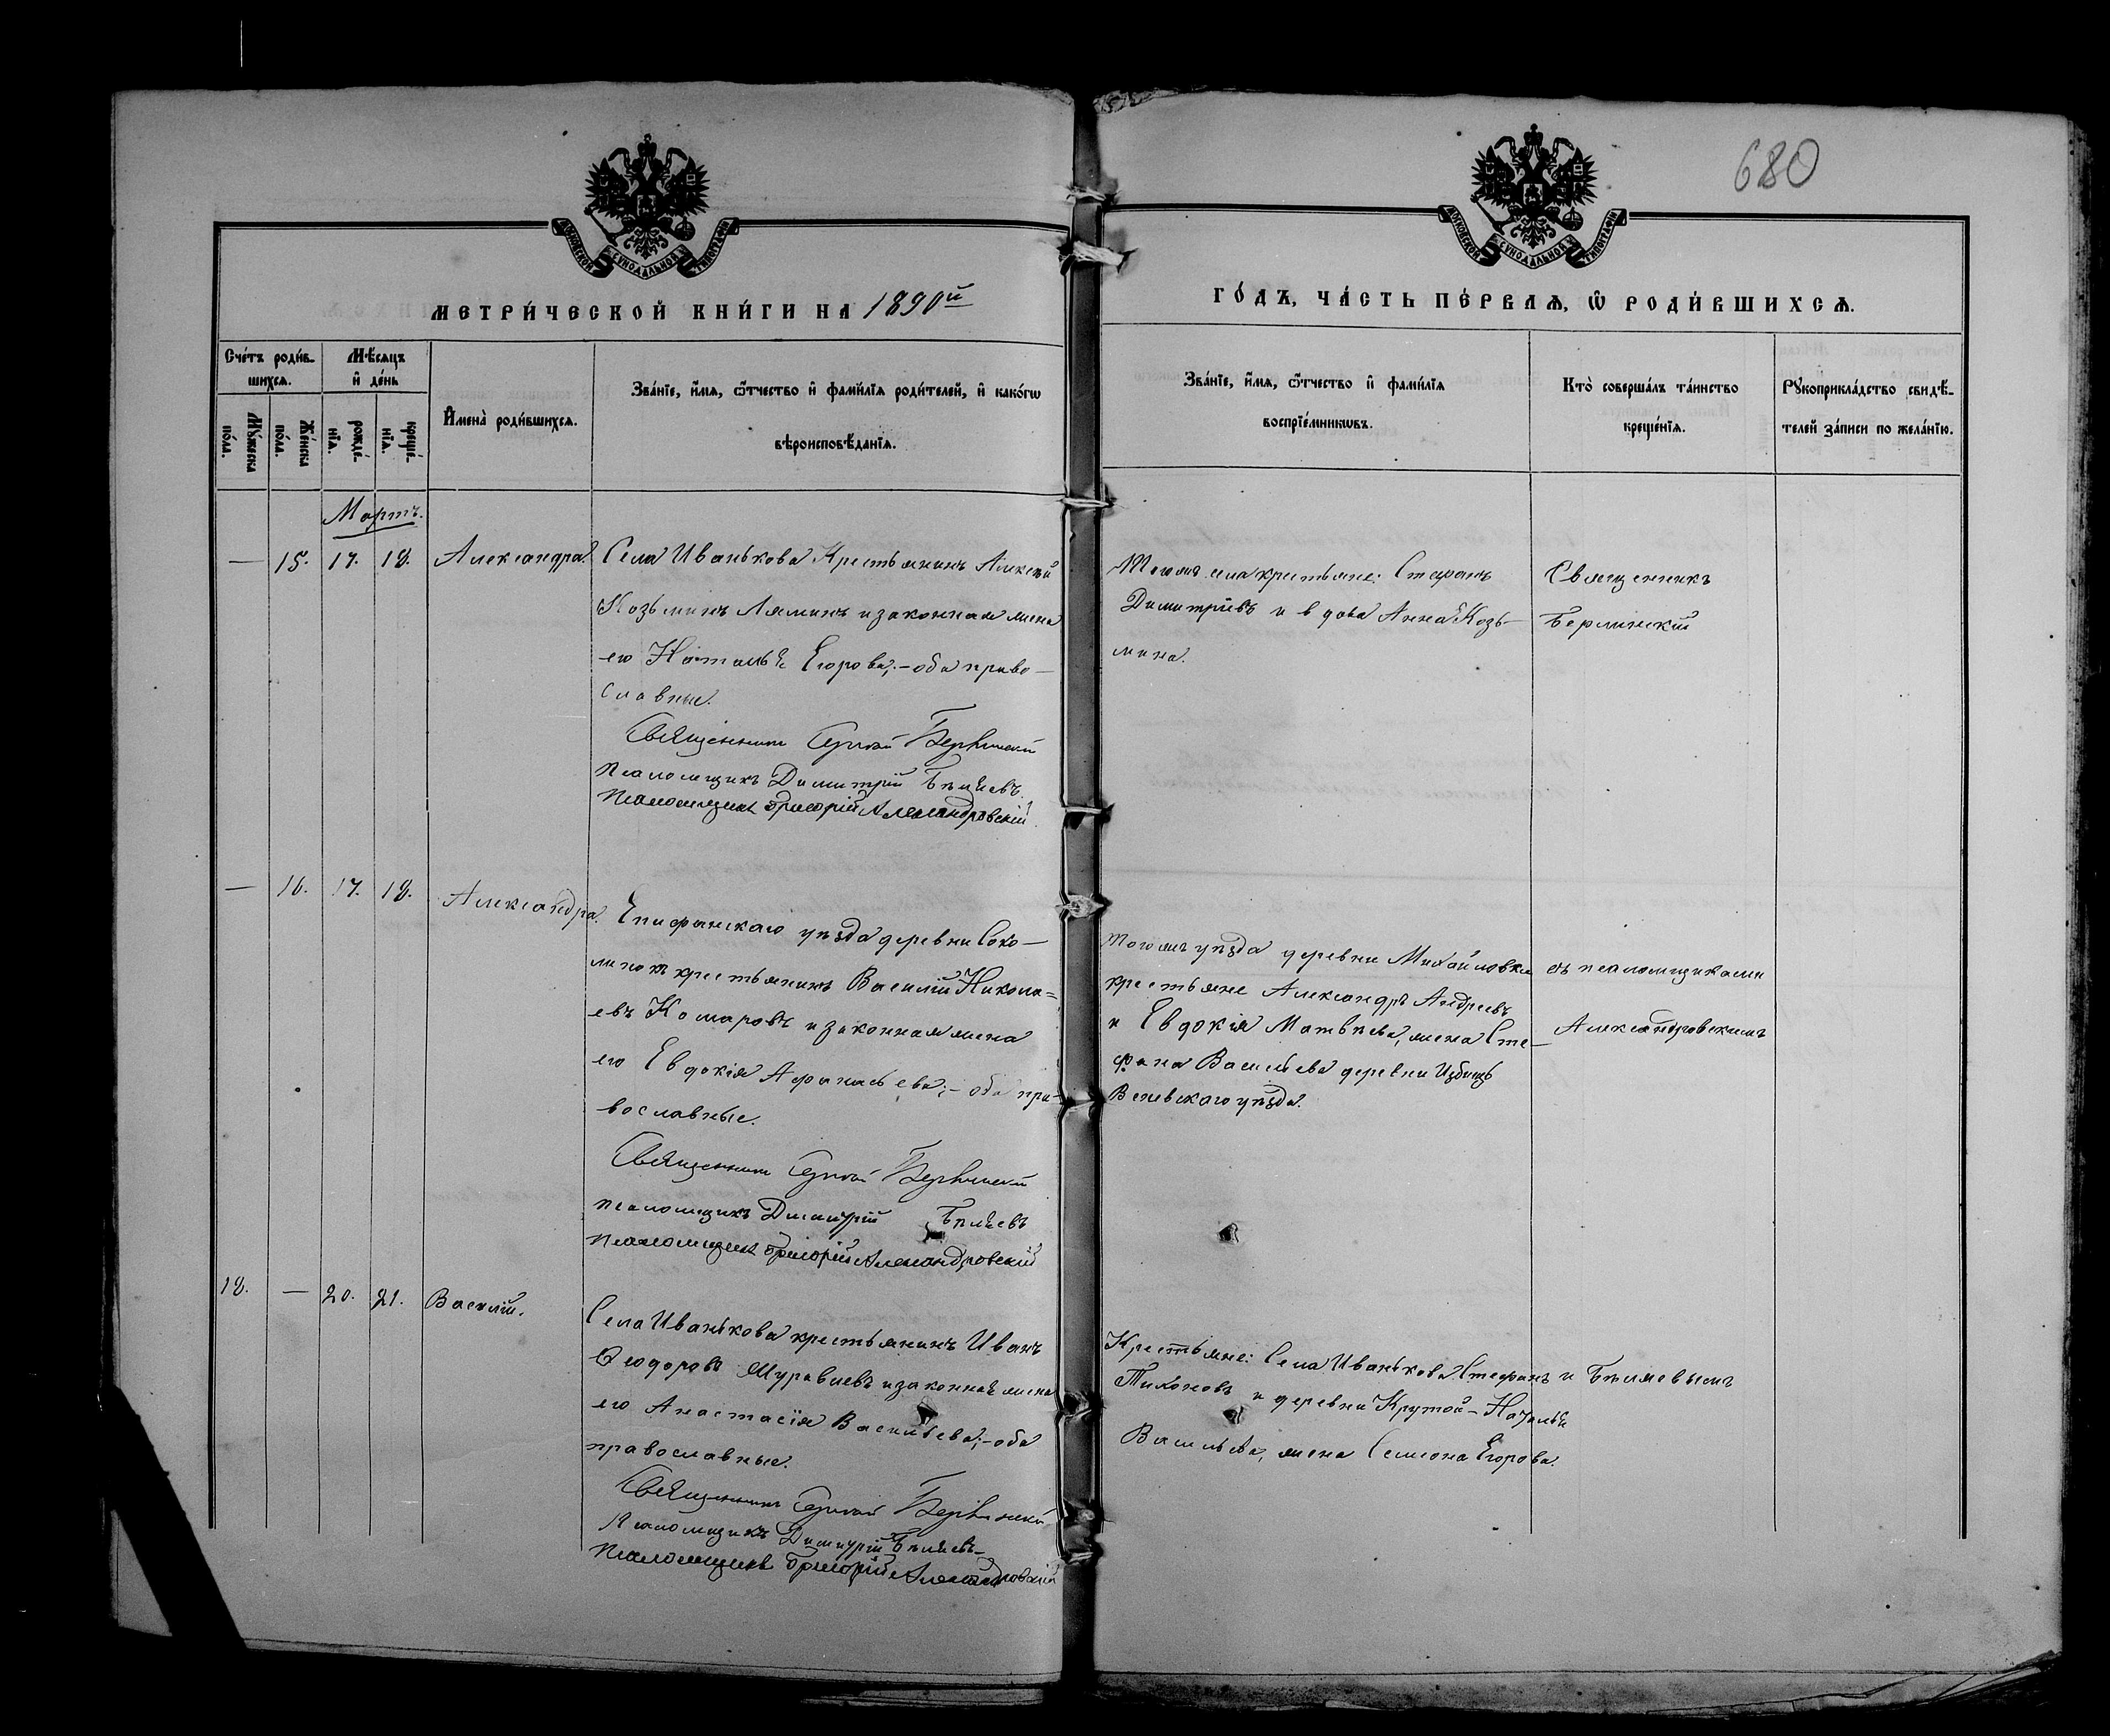 680
МОСКОВСКОЙ СѴНОДАЛЬНОЙ ТИПОГРАФІИ
МОСКОВСКОЙ СѴНОДАЛЬНОЙ ТИПОГРАФІИ
МЕТРИ́ЧЕСКОЙ КНИ́ГИ НА 1890й
ГО́ДЪ, ЧА́СТЬ ПЕ́РВАѦ, Ѿ РОДИ́ВШИХСѦ.
Сче́тъ роди́в-
шихсѧ.
Мꙋ́жеска по́ла.
Же́нска по́ла.
Мѣ́сѧцъ и҆ де́нь
рожде́-нїѧ.
креще́-нїѧ.
И҆мена̀ роди́вшихсѧ.
Зва́нїе, и҆́мѧ, ѻ҆́тчество и҆ фами́лїѧ роди́телей, и҆ како́гѡ
вѣроисповѣ́данїѧ.
Зва́нїе, и҆́мѧ, ѻ҆́тчество и҆ фами́лїѧ
воспрїе́мникѡвъ.
Кто̀ соверша́лъ та́инство
креще́нїѧ.
Рꙋкоприкла́дство свидѣ́-
телей за́писи по жела́нїю.
Мартъ.
— 15. 17. 18. Александра.
Села Иванькова Крестьянинъ Алексѣй
Козьминъ Ляминъ и законная жена
его Наталья Егорова; – оба право-
славные.
Священникъ Сергій Берлинскій
Псаломщикъ Димитрій Бѣляевъ.
Псаломщикъ Григорій Александровскій.
Тогожъ села крестьяне: Стефанъ
Димитріевъ и вдова Анна Козь-
мина.
Священникъ
Берлинскій
— 16. 17. 18. Александра.
Епифанскаго уѣзда деревни Соко-
крестьянинъ Василій Никола=
евъ Комаровъ и законная жена
его Евдокія Афанасьева; – оба пра-
вославные.
Священникъ Сергій Берлинскій
псаломщикъ Димитрій Бѣляевъ
Псаломщикъ Григорій Александровскій
тогожъ уѣзда деревни Михайловки
крестьяне Александръ Андреевъ
и Евдокія Матвѣева, жена Сте-
фана Васильева деревни Избищъ
Веневскаго уѣзда.
съ псаломщиками
Александровскимъ
18. — 20. 21. Василій.
Села Иванькова крестьянинъ Иванъ
Ѳеодоровъ Журавлевъ и законная жена
его Анастасія Васильева; – оба
православные.
Священникъ Сергій Берлинскій
Псаломщикъ Димитрій Бѣляевъ
Псаломщикъ Григорій Александровскій
Крестьяне: Села Иванькова Стефанъ
Тихоновъ и деревни Крутой – Наталья
Васильева, жена Семиона Егорова.
и Бѣляевымъ